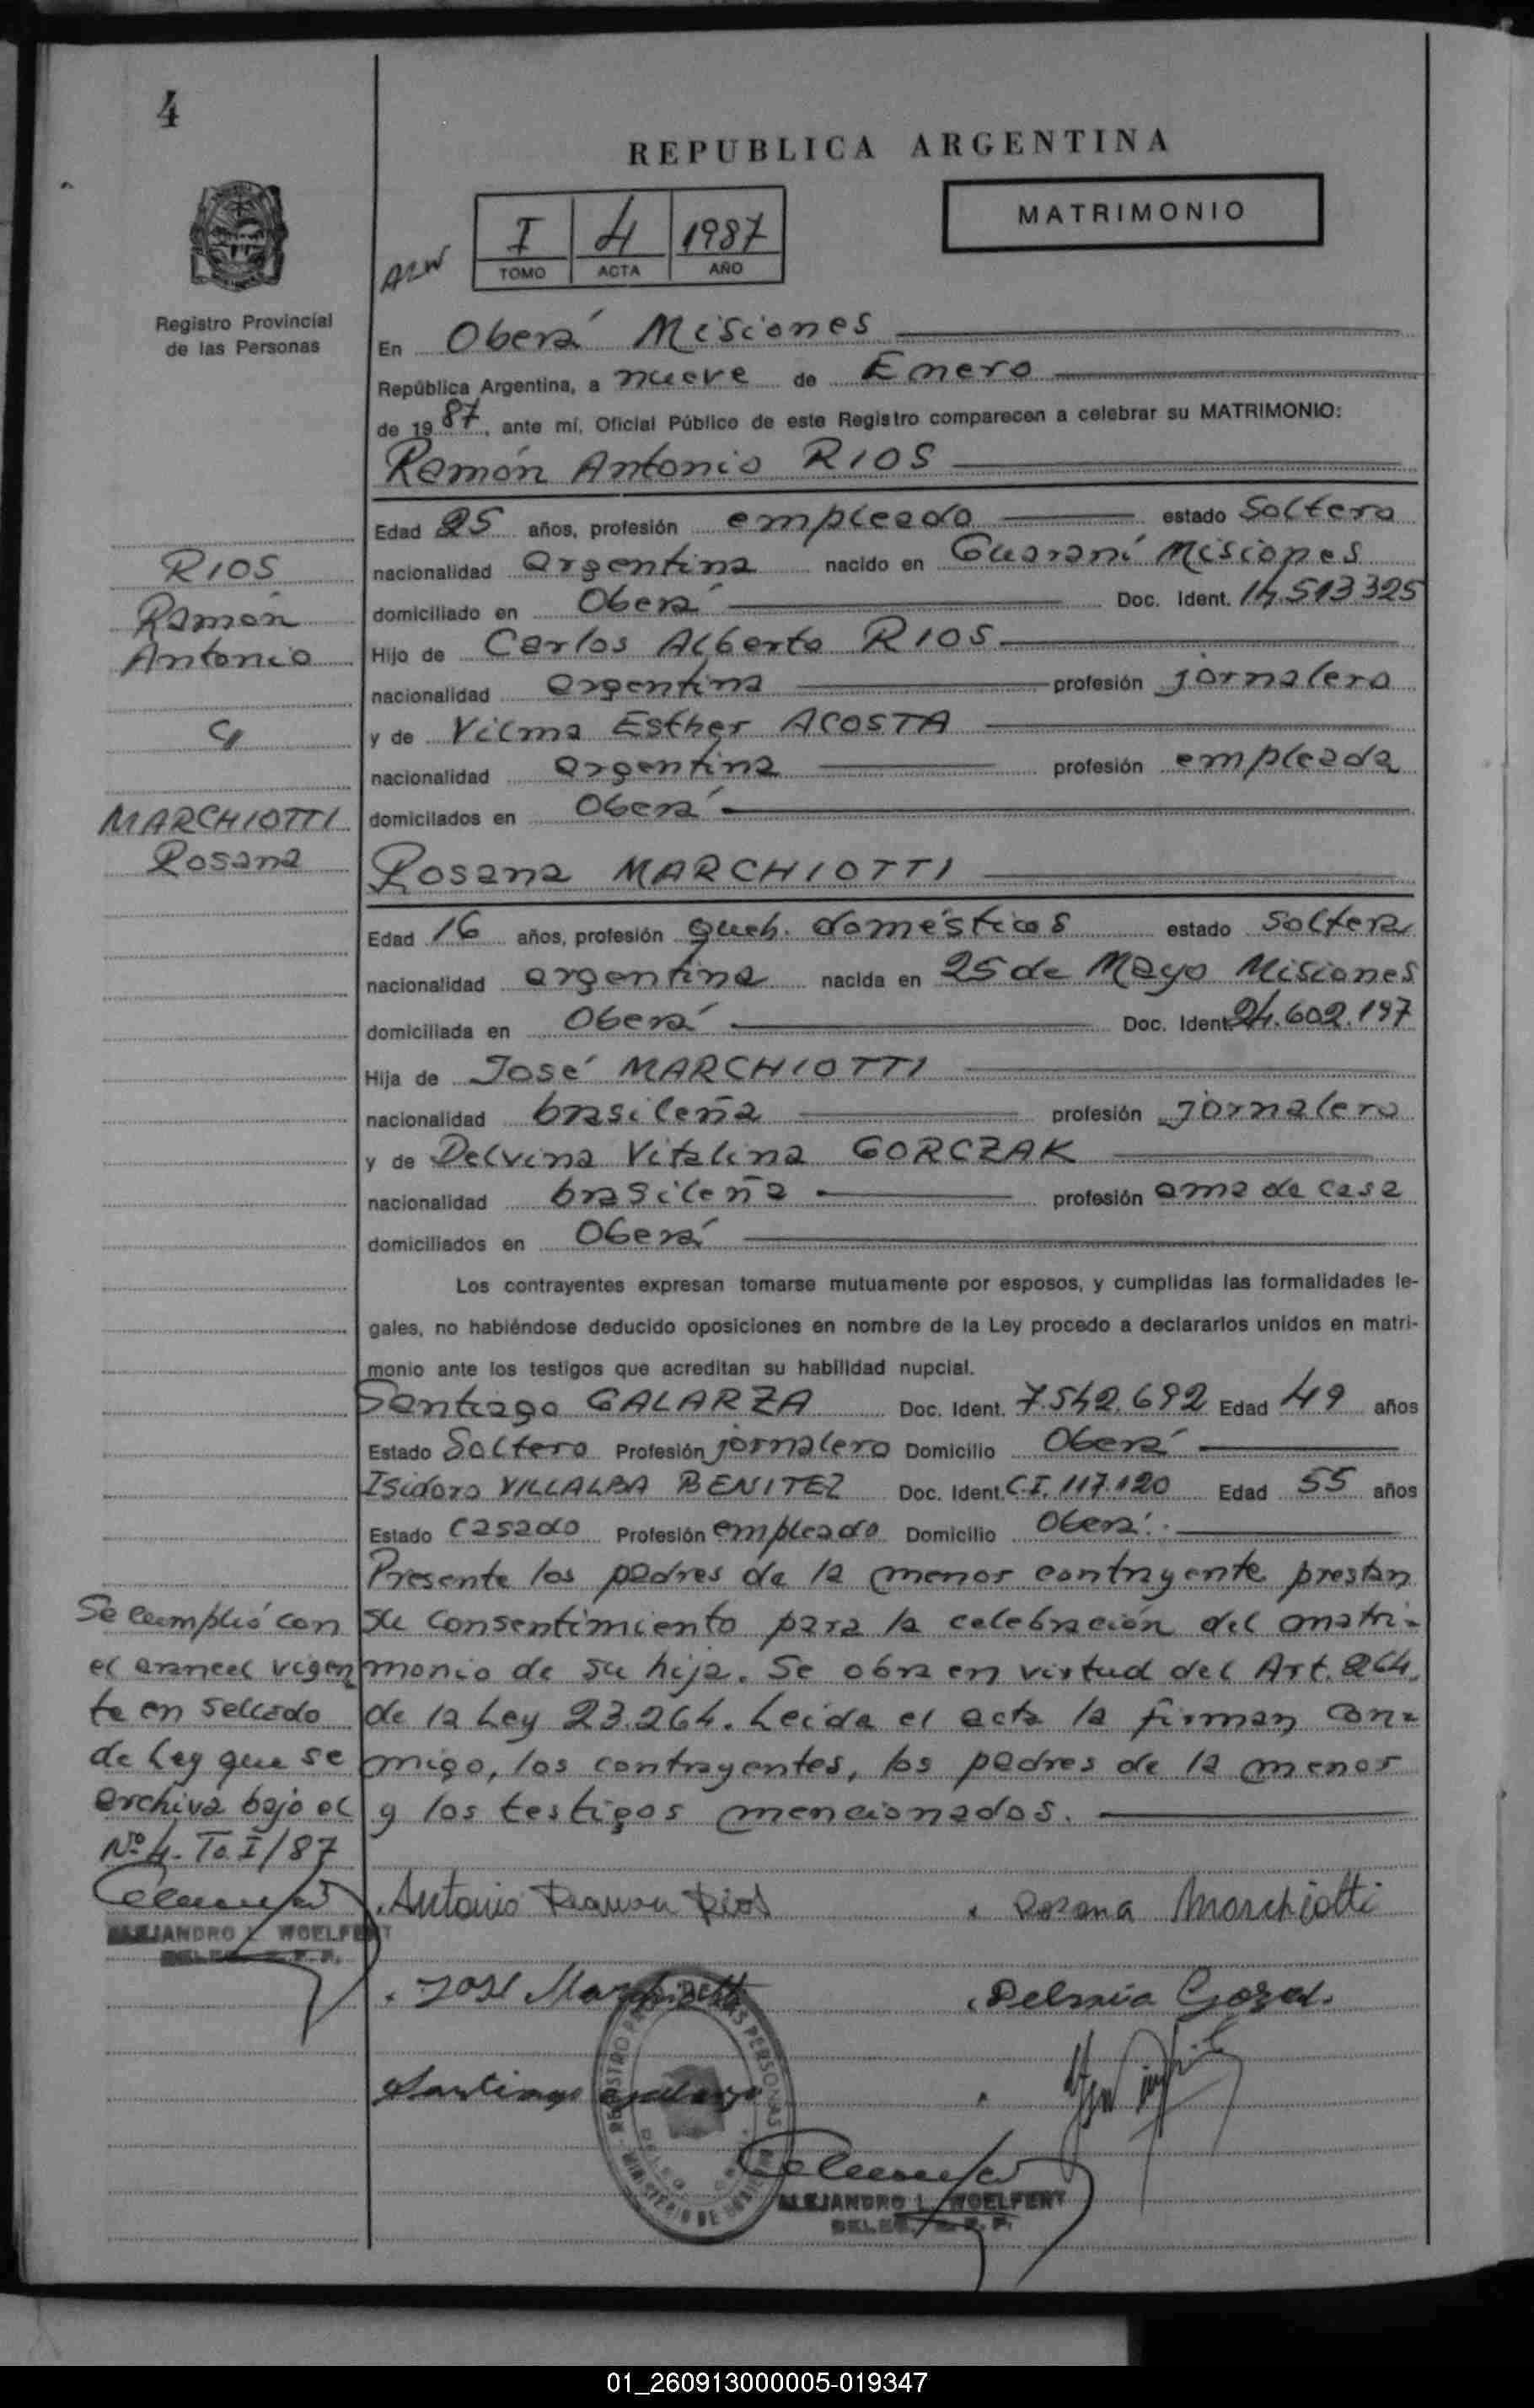 4
REPUBLICA ARGENTINA
MATRIMONIO
I 4 1987
TOMO ACTA AÑO
ALW
Registro Provincial
de las Personas
En Oberá Misiones
República Argentina, a nueve de Enero
de 1987, ante mí, Oficial Público de este Registro comparecen a celebrar su MATRIMONIO:
Ramón Antonio RIOS
Edad 25 años, profesión empleado estado Soltero
RIOS
nacionalidad argentina nacido en Guaraní Misiones
Ramón
domiciliado en Oberá Doc. Ident. 14.513.325
Antonio
Hijo de Carlos Alberto RIOS
nacionalidad argentina profesión jornalero
c/
y de Vilma Esther ACOSTA
nacionalidad argentina profesión empleada
MARCHIOTTI
domicilados en Oberá
Rosana
Rosana MARCHIOTTI
Edad 16 años, profesión queh. domésticos estado soltera
nacionalidad argentina nacida en 25 de Mayo Misiones
domiciliada en Oberá Doc. Ident 24.602.197
Hija de José MARCHIOTTI
nacionalidad brasileña profesión jornalero
y de Delvina Vitalina GORCZAK
nacionalidad brasileña profesión ama de casa
domiciliados en Oberá
Los contrayentes expresan tomarse mutuamente por esposos, y cumplidas las formalidades le-
gales, no habiéndose deducido oposiciones en nombre de la Ley procedo a declararlos unidos en matri-
monio ante los testigos que acreditan su habilidad nupcial.
Santiago GALARZA Doc. Ident. 7.542.692 Edad 49 años
Estado Soltero Profesión jornalero Domicilio Oberá
Isidoro VILLALBA BENITEZ Doc. Ident. C.I. 117.120 Edad 55 años
Estado casado Profesión empleado Domicilio Oberá.
Presente los padres de la menor contrayente prestan
su consentimiento para la celebración del matri-
monio de su hija. Se obra en virtud del Art. 264,
de la Ley 23.264. Leída el acta la firman con-
migo, los contrayentes, los padres de la menor
y los testigos mencionados.
Se cumplió con
el arancel vigen
te en sellado
de Ley que se
archiva bajo el
Nº 4. To. I/87
ALEJANDRO L. WOELFERT
Antonio Ramon Rios
Rosana Marchiotti
José Marchiotti
Santiago galarza
ALEJANDRO L. WOELFERT
01_260913000005-019347